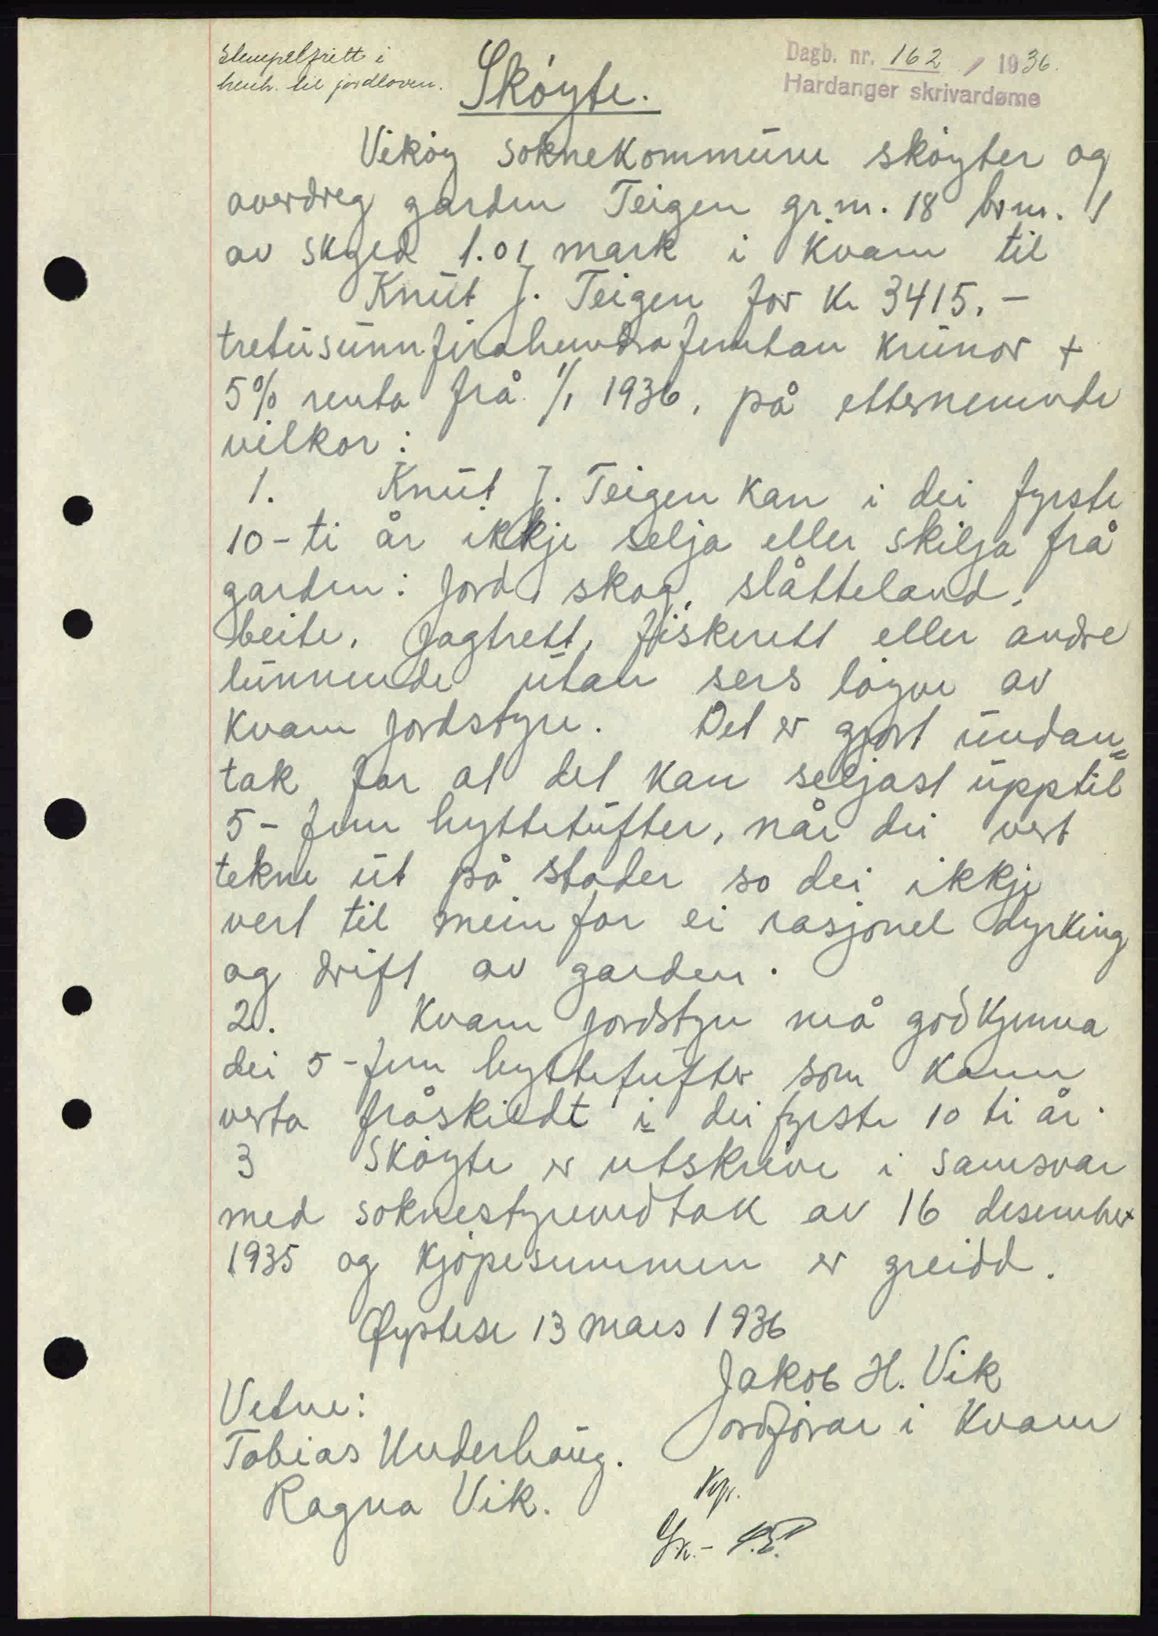 Stempelfritt i
henh. til jordloven.
Dagb. nr. 162 / 1936.
Hardanger skrivardøme
Skøyte.
Vikøy soknekommune skøyter og
overdreg garden Teigen gr.nr. 18 br.nr. 1
av skyld 1.01 mark i Kvam til
Knut J. Teigen for kr 3415.-
tretusunnfirahundrafemtan krunor +
5% renta frå 1/1 1936, på etternemnde
vilkor:
1. Knut J. Teigen kan i dei fyrste
10-ti år ikkje selja eller skilja frå
garden: Jord, skog, slåtteland,
beite, Jagtrett, fiskerett eller andre
lunnende utan sers løyve av
Kvam jordstyre. Det er gjort undan=
tak for at det kan seljast upptil
5-fem hyttetufter, når dei vert
tekne ut på stader so dei ikkje
vert til mein for ei rasjonel dyrking
og drift av garden.
2. Kvam jordstyre må godkjenna
dei 5-fem hyttetufter som kann
verta fråskildt i dei fyrste 10 ti år.
3 Skøyte er utskrive i samsvar
med soknestyrevedtak av 16 desember
1935 og kjøpesummen er greidd.
Øystese 13 mars 1936
Jakob H. Vik
Ordførar i Kvam
Vitne:
Tobias Underhaug.
Ragna Vik.